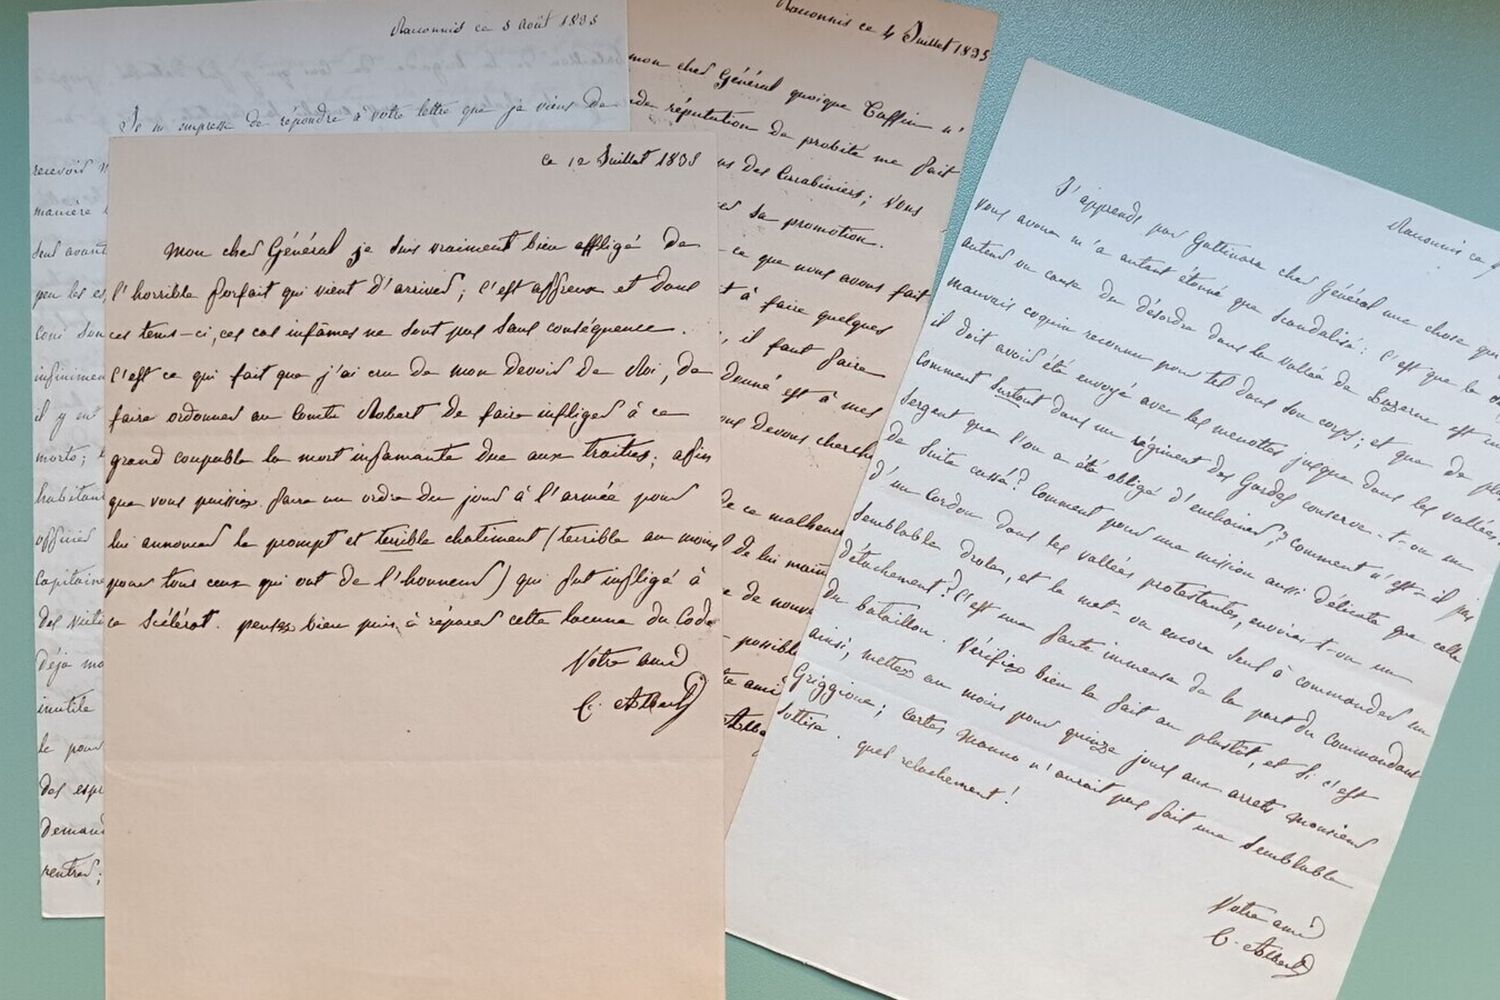 Racconnis ce 8 Août 1835
Je m'empresse de répondre à votre lettre que je viens de
recevoir
manière
peu les
infiniment
il y
morts;
habitants
officier
capitaine
déjà
inutile
le pour
des
demand
rentrer;
ce 12 Juillet 1835
Mon cher Général je suis vraiment bien affligé de
l'horrible forfait qui vient d'arriver; c'est affreux et dans
ces tems-ci, ces cas infâmes ne sont pas sans conséquence.
C'est ce qui fait que j'ai cru de mon devoir de Roi, de
faire ordonner au Comte Robert de faire infliger à ce
grand coupable la mort infamante due aux traitres; afin
que vous puissiez faire un ordre du jour à l'armée pour
lui annoncer le prompt et terrible chatiment (terrible au moins
pour tous ceux qui ont de l'honneur) qui fut infligé à
ce scélérat. pensez bien puis à réparer cette lacune du Code
Votre ami
C. Albert
Racconnis ce 4 Juillet 1835
mon cher Général quoique Taffin n'
réputation de probité me fait
des Carabiniers; Vous
sa promotion.
ce que nous avons fait
à faire quelques
il faut faire
donné est à mes
devons cherch
de ce malheur
de lui
de nouv
possible
ami
Racconnis ce
J'apprends par Gattinara cher Général une chose qui
vous avoue m'a autant étonné que scandalisé: c'est que le
auteur ou cause du désordre dans la vallée de Luzerne est un
mauvais coquin reconnu pour tel dans son corps; et que de plus
il doit avoir été envoyé avec les menottes jusque dans les vallées.
Comment surtout dans un régiment des Gardes conserve-t-on un
sergent que l'on a été obligé d'enchainer? Comment n'est-il pas
de suite cassé? Comment pour une mission aussi délicate que celle
d'un Cordon dans les vallées protestantes, envoie-t-on un
semblable drole, et le met-on encore seul à commander un
détachement? C'est une faute immense de la part du Commandant
du bataillon. Vérifiez bien le fait au plustôt, et si c'est
ainsi, mettez au moins pour quinze jours aux arrets Monsieur
Griggione; certes Manno n'aurait pas fait une semblable
sottise. quel relachement!
Votre ami
C. Albert